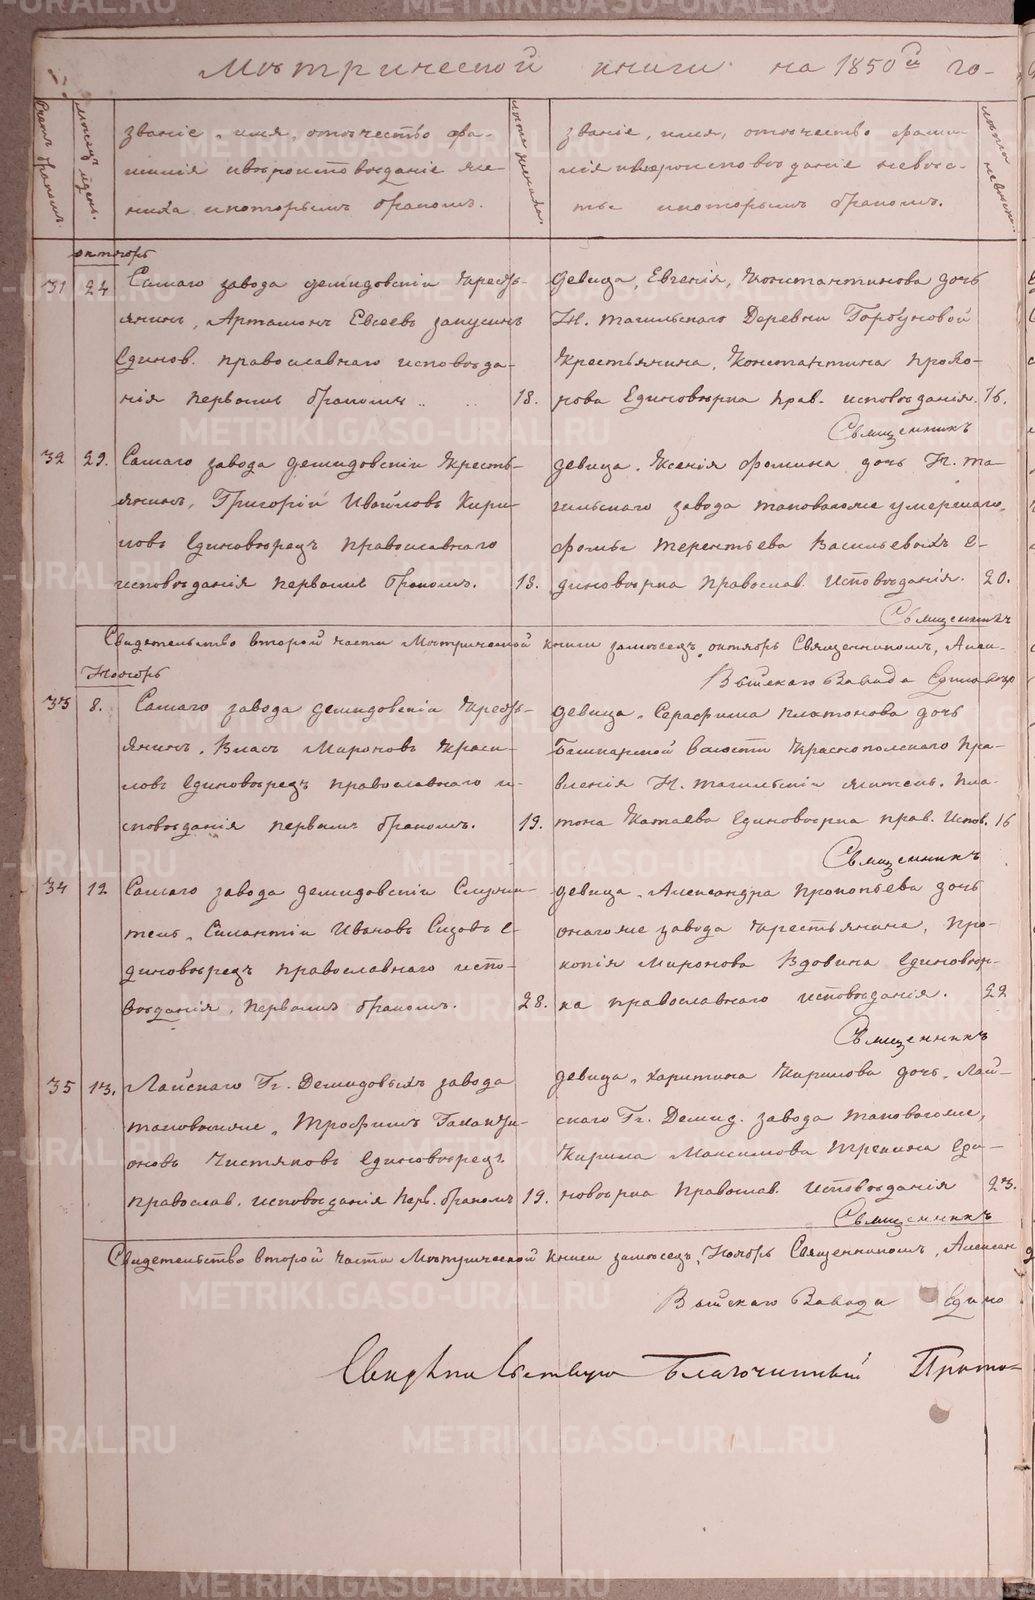 Метрической книги на 1850й го-
Счетъ браковъ.
Месяцъ и день.
званіе, имя, отечество, фа-
милія и вероисповеданіе же-
ниха и которымъ бракомъ.
лета жениха.
званіе, имя, отечество, фами-
лія и вероисповеданіе невес-
ты и которымъ бракомъ.
лета невесты.
октябрь
31 24 Самаго завода демидовскій кресть-
янинъ, Артамонъ Евсеевъ
Единов. православнаго исповеда-
нія первымъ бракомъ 18.
девица, Евгенія, Константинова дочь
Н. тагильскаго Деревни Горбуновой
крестьянина, Константина Прохо-
рова Единоверка прав. исповеданія. 16.
Священникъ
32 29. Самаго завода демидовскій кресть-
янинъ, Григорій Ивановъ Кири-
ловъ единоверецъ православнаго
исповеданія первымъ бракомъ. 18.
девица, Ксенія Фомина дочь Н. та-
гильскаго завода таковагоже умершаго,
Фомы Терентьева Васильевыхъ е-
диноверка православ. исповеданія. 20.
Священникъ
Свидетельство второй части Метрической книги замесецъ, октябрь Священникомъ, Алек-
Выйскаго Завода Единовер
Ноябрь
33 8. Самаго завода демидовскій кресть-
янинъ, Власъ Мироновъ Краси-
ловъ единоверецъ православнаго и-
споведанія первымъ бракомъ. 19.
девица, Серафима Платонова дочь
Башкарской волости Краснопольскаго пра-
вленія Н. тагильскій житель, Пла-
тона Катаева единоверка прав. Испов. 16
Священникъ
34 12 Самаго завода демидовскій Служи-
тель, Силантій Ивановъ Сизовъ е-
диноверецъ православнаго испо-
веданія, первымъ бракомъ. 28.
девица, Александра Прокопьева дочь
онагоже завода крестьянина, Про-
копія Миронова Вдовина единовер-
ка православнаго исповеданія. 22
Священникъ
35 13. Лайскаго Гг. Демидовыхъ завода
таковыеже, Трофимъ Галакти-
оновъ Чистяковъ единоверецъ
православ. исповеданія перв. бракомъ 19.
девица, Харитина Кирилова дочь, Лай-
скаго Гг. Демид. завода таковагоже,
Кирила Максимова Трепина еди-
новерка Православ. исповеданія 23.
Священникъ
Свидетельство второй части Метрической книги замесецъ, Ноябрь Священникомъ, Алексан
Выйскаго Завода Едино
Свидетельствую Благочинный Прото-
METRIKI.GASO-URAL.RU